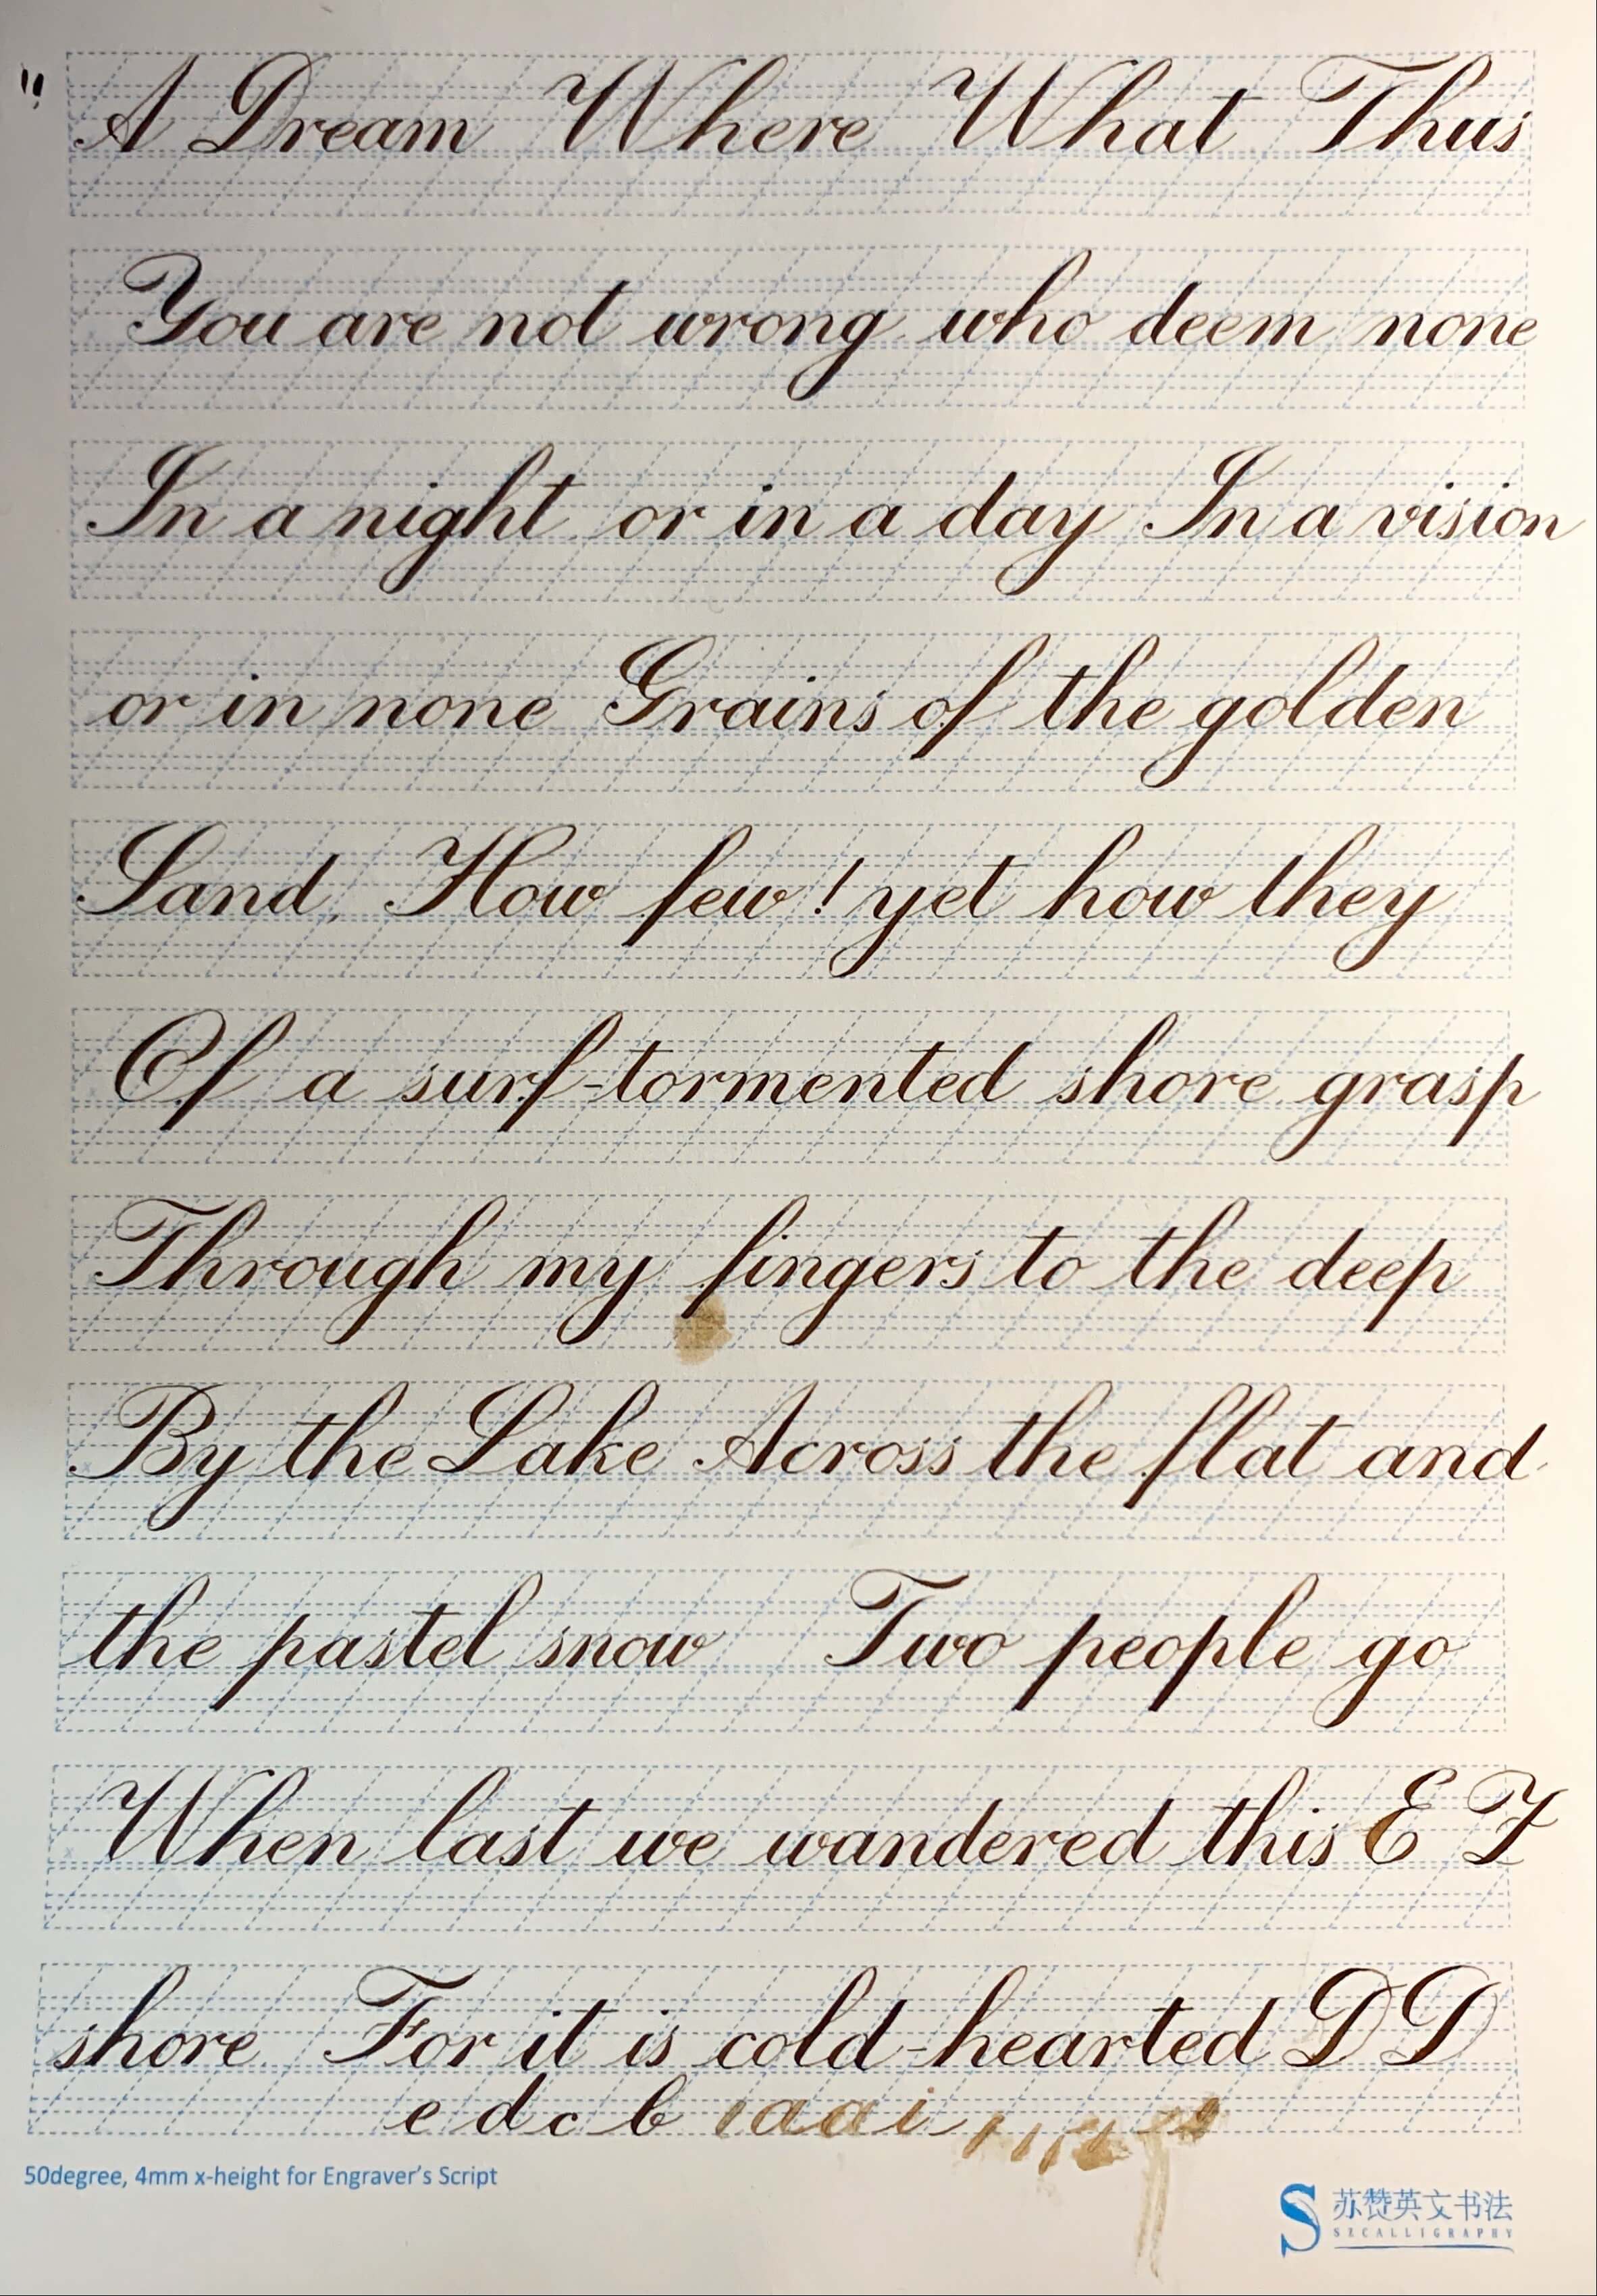 A Dream Where What Thus
You are not wrong who deem none
In a night or in a day In a vision
or in none Grains of the golden
Sand. How few! yet how they
Of a surf-tormented shore grasp
Through my fingers to the deep
By the Lake Across the flat and
the pastel snow Two people go
When last we wandered this E F
shore For it is cold-hearted D D
e d c b i a a i
50degree, 4mm x-height for Engraver's Script
苏赞英文书法
SZCALLIGRAPHY